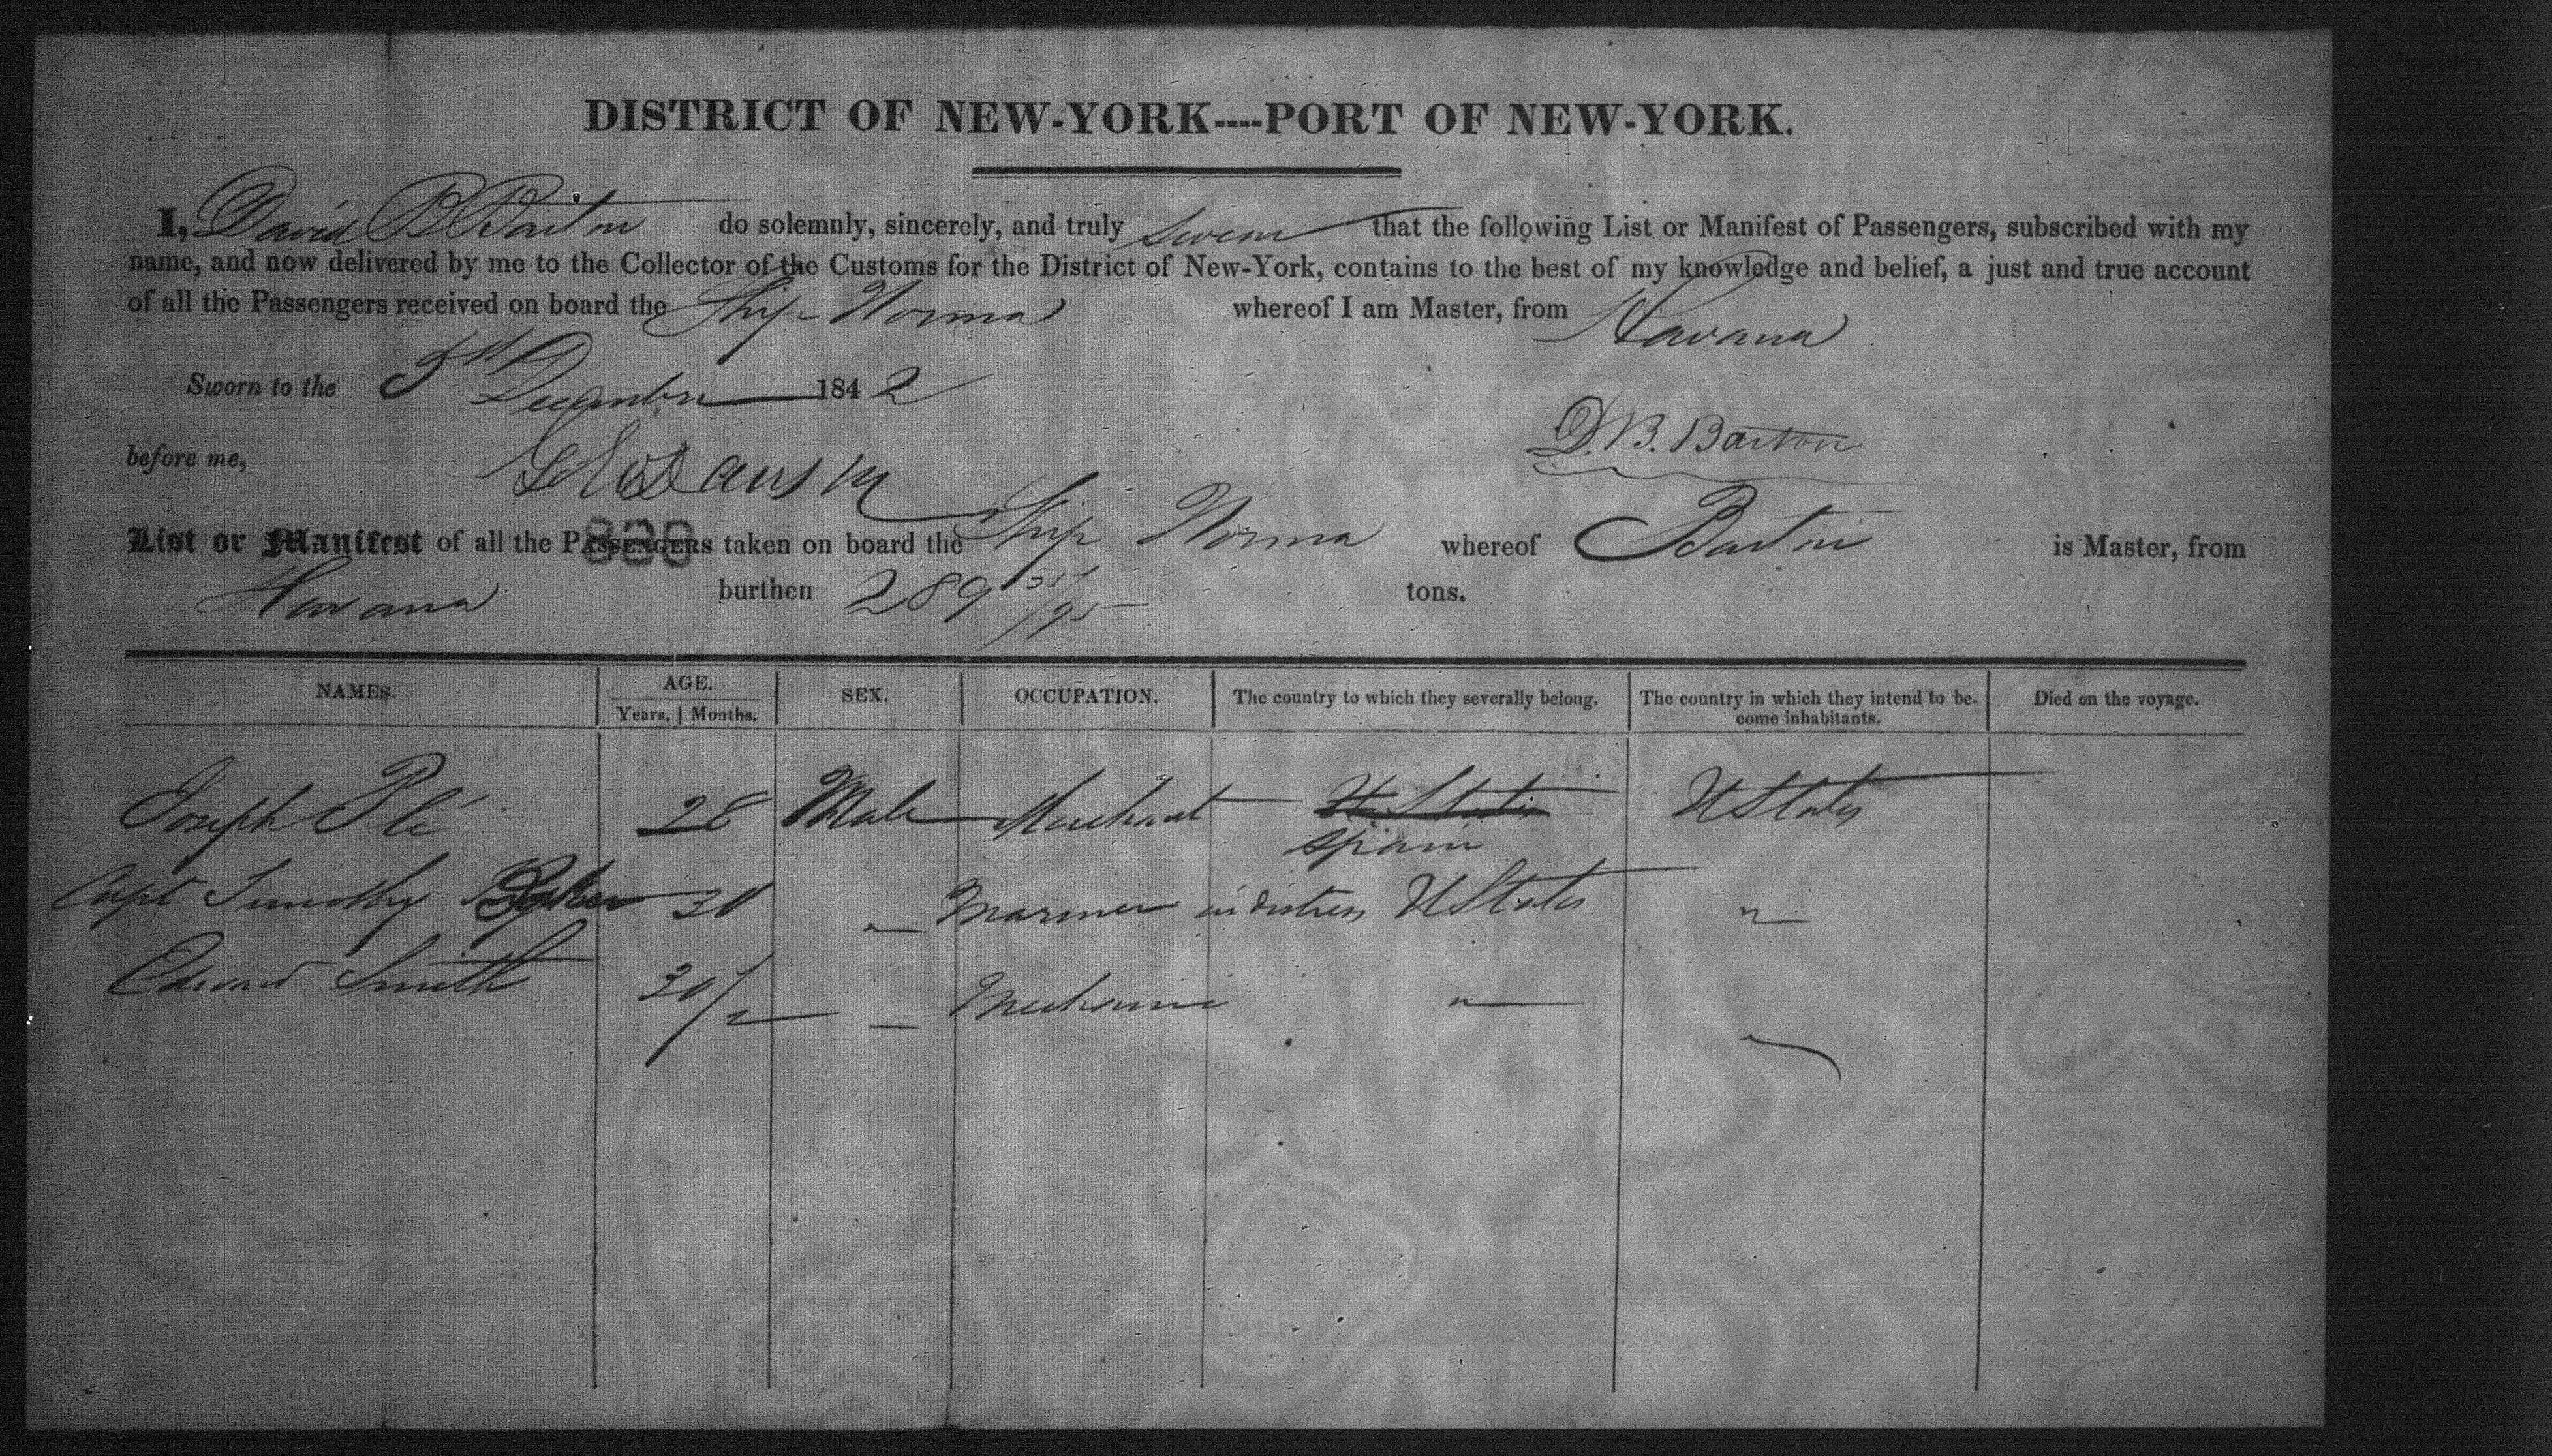 DISTRICT OF NEW-YORK----PORT OF NEW-YORK.
I, David B Barton do solemnly, sincerely, and truly swear that the following List or Manifest of Passengers, subscribed with my
name, and now delivered by me to the Collector of the Customs for the District of New-York, contains to the best of my knowledge and belief, a just and true account
of all the Passengers received on board the Ship Norma whereof I am Master, from Havana
Sworn to the December 1842
D. B. Barton
before me,
828
List or Manifest of all the PASSENGERS taken on board the Ship Norma whereof Barton is Master, from
Havana burthen 289 /95 tons.
NAMES. AGE. SEX. OCCUPATION. The country to which they severally belong. The country in which they intend to be-
Years. | Months. come inhabitants. Died on the voyage.
Joseph Plé 28 Male Merchant U States U States
Spain
Capt Timothy 30 " Mariner in distress U States "
Edward Smith 30/2 — Mechanic " "